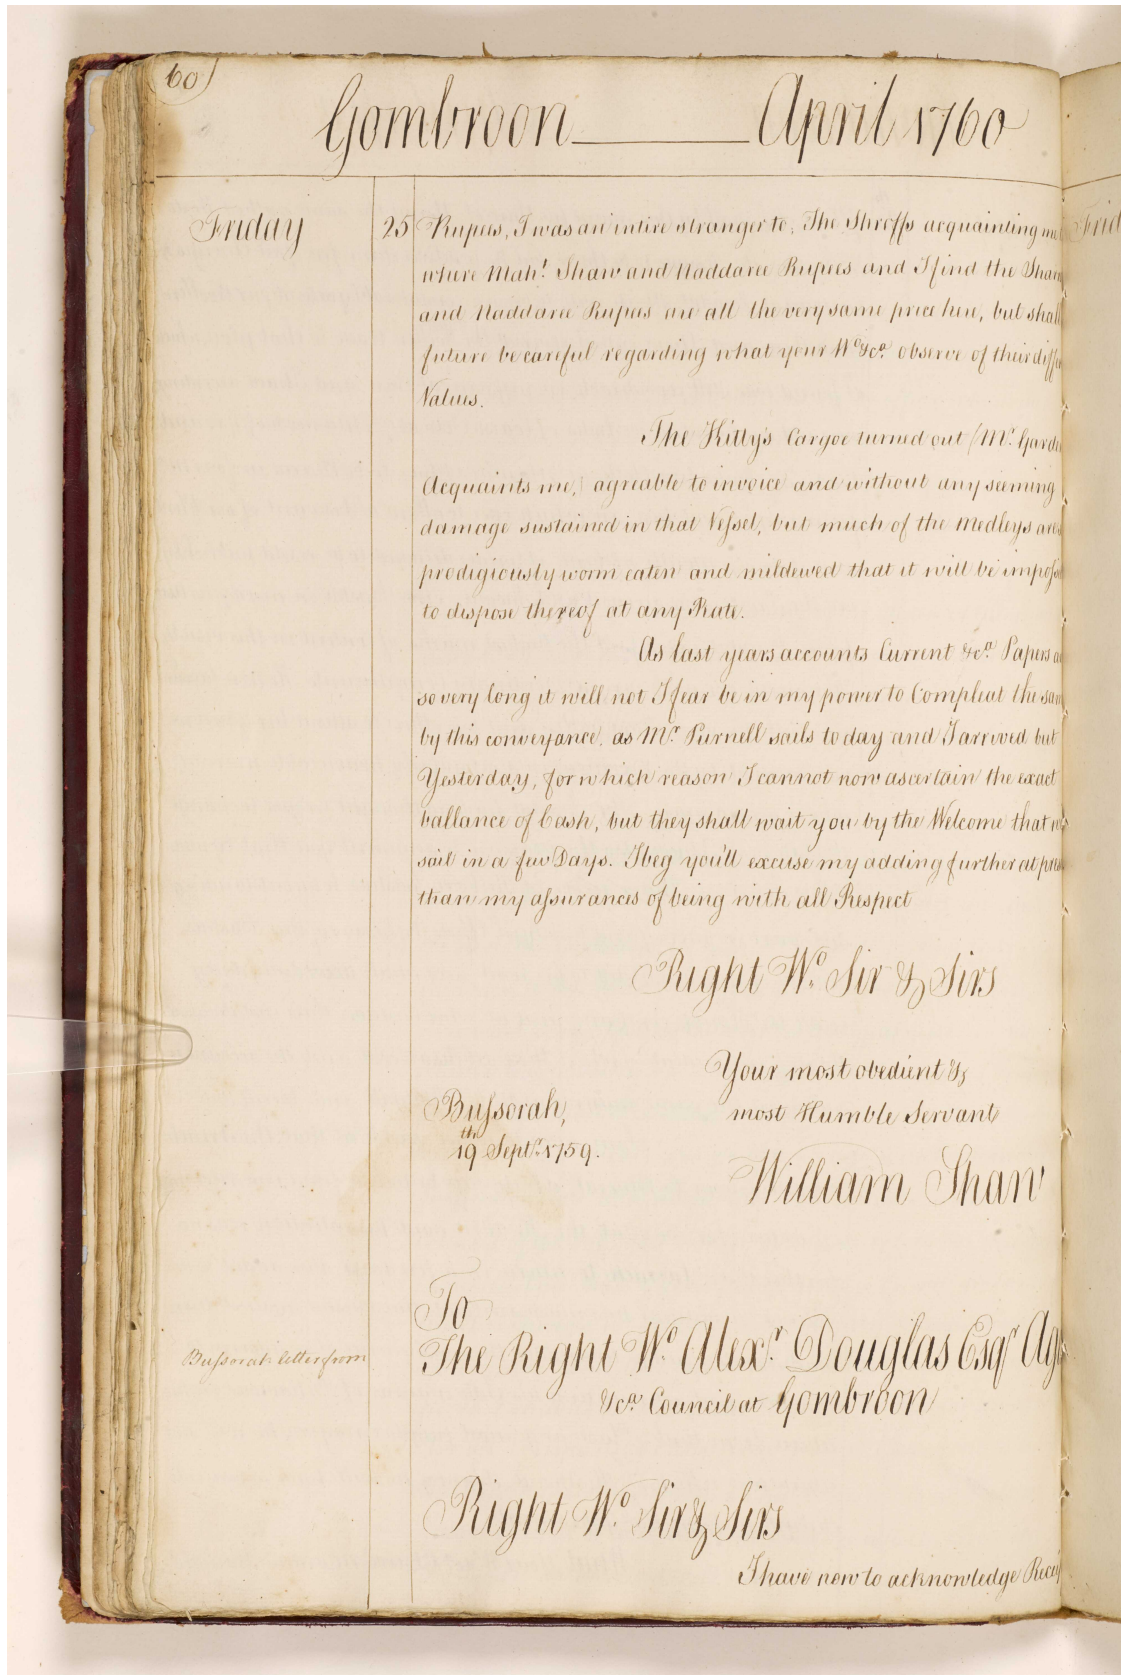 60
Gombroon April 1760
Friday 25 Rupees, I was an intire stranger to, The Shroffs acquainting me
where Mahd. Shaw and Naddaree Rupees and I find the Shaw
and Naddaree Rupees are all the very same price here, but shall
future be careful regarding what your Wo. &ca. observe of their
Values.
The Kitty's Cargoe turned out (Mr.
Acquaints me,) agreable to invoice and without any seeming
damage sustained in that Vessel, but much of the Medleys are
prodigiously worm eaten and mildewed that it will be
to dispose thereof at any Rate.
As last years accounts Current &ca. Papers
so very long it will not I fear be in my power to Compleat the
by this conveyance, as Mr. Purnell sails to day and I arrived but
Yesterday, for which reason I cannot now ascertain the exact
ballance of Cash, but they shall wait you by the Welcome that
sail in a few Days. I beg you'll excuse my adding further at
than my assurances of being with all Respect
Right Wo. Sir & Sirs
Your most obedient &
Bussorah, most Humble Servant
19th Septr. 1759.
William Shaw
To
Bussorah letter from The Right Wo. Alexr. Douglas Esqr
&ca. Council at Gombroon
Right Wo. Sir & Sirs
I have now to acknowledge